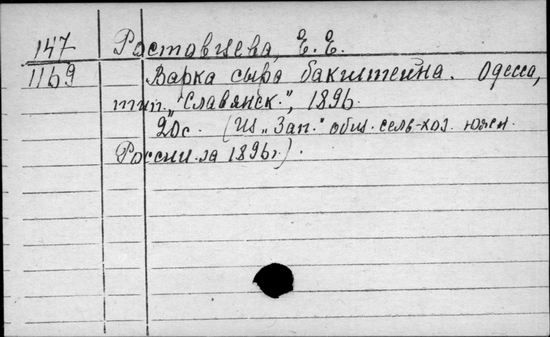 147 Роставцева, Е. Е.
1169 Варка сыра бакштейна. Одесса,
тип. "Славянск.", 1896.
20с. (Из „Зап." общ. сельв-хоз. южн.
России за 1896г.).